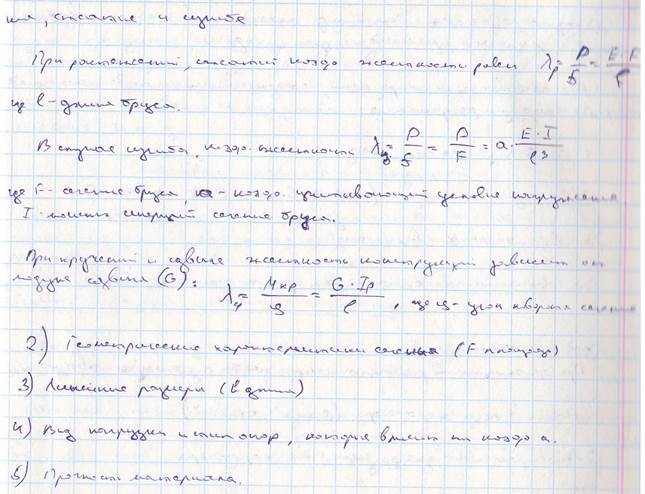 ия, сжатие и изгибе
При растяжений, сжатий коэфф жесткости равен λр = P/δ = E·F/ℓ
где ℓ - длина бруса.
В случае изгиба, коэфф. жесткости λ = P/δ = P/F = a · E·I/ℓ3
где F - сечение бруса, a - коэфф. учитывающий условие нагружения,
I - момент инерций сечение бруса.
При кручений и сдвиге жесткость конструкций зависит от
модуля сдвига (G): λ = Мкр/φ = G·Ip/ℓ, где φ - угол поворота сечения
2.) Геометрические характеристики сечения (F площадь)
3) Линейные размеры (ℓ длина)
4) Вид нагрузки и тип опор, которые влияет на коэфф a.
5) Прочность материала.